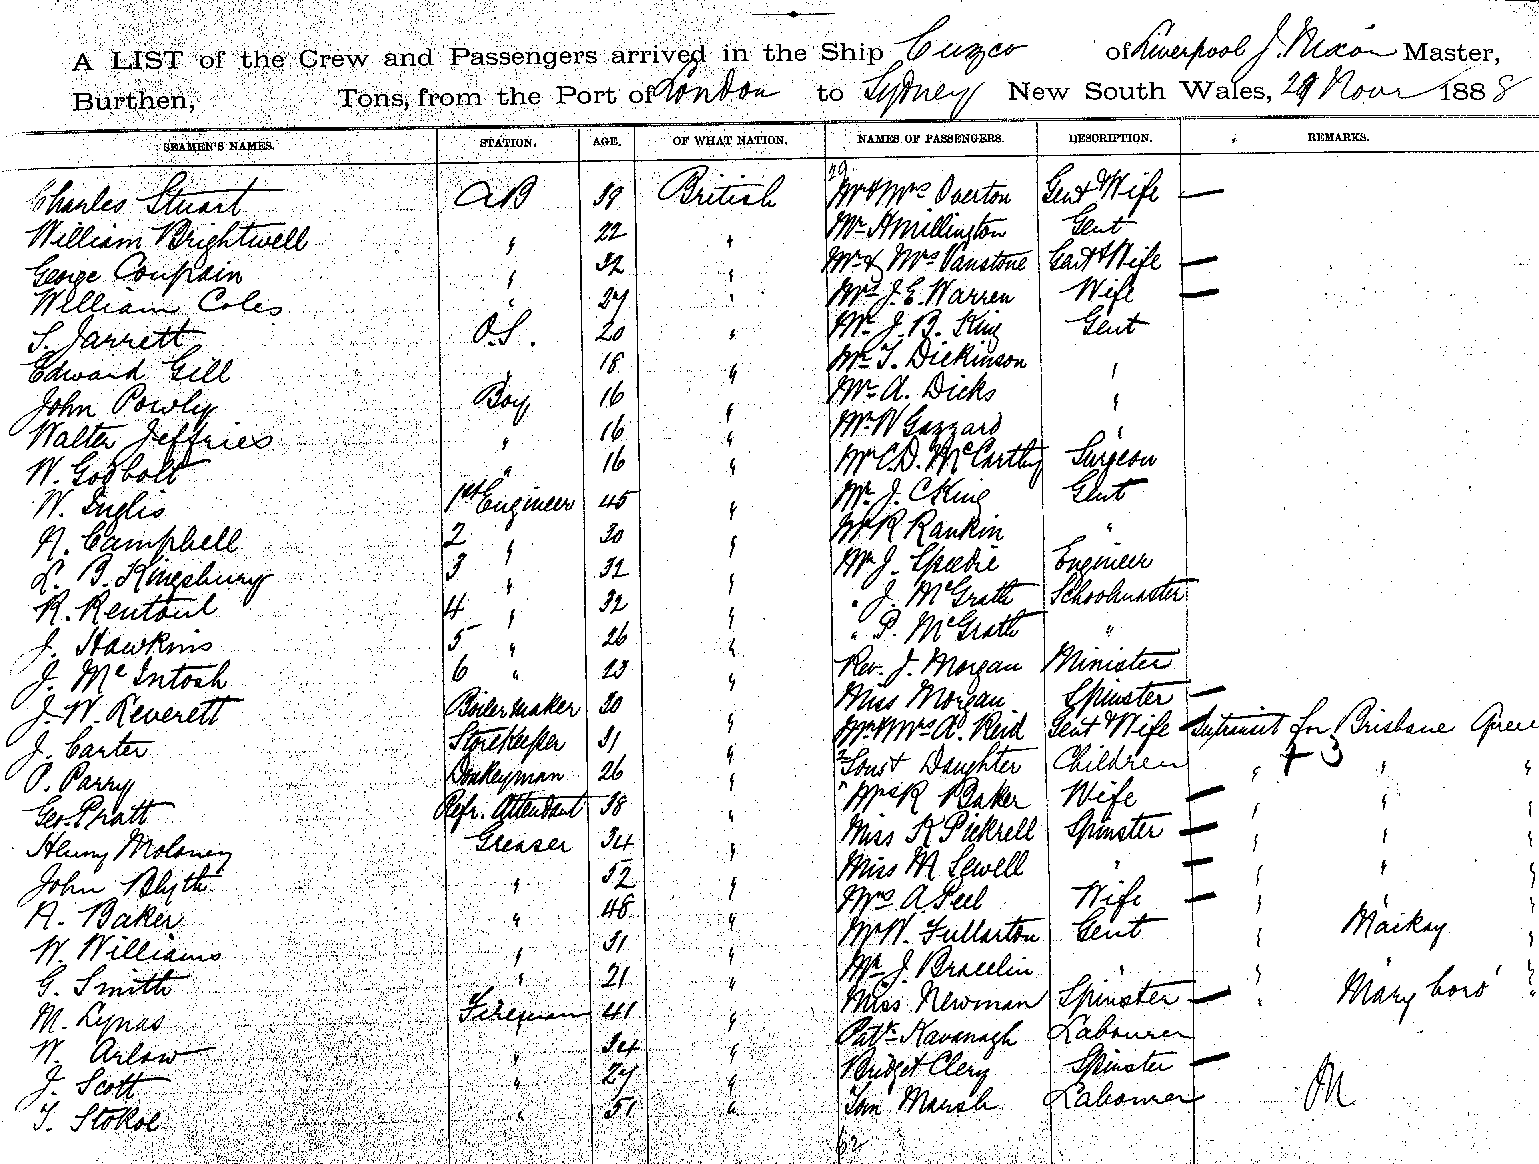 A LIST of the Crew and Passengers arrived in the Ship Cuzco of Liverpool J. Nixon Master,
Burthen, Tons, from the Port of London to Sydney New South Wales, 29 Novr 1888
SEAMEN'S NAMES. STATION. AGE. OF WHAT NATION. NAMES OF PASSENGERS. DESCRIPTION. REMARKS.
Charles Stuart AB 39 British Mr & Mrs Overton Gent & Wife —
William Brightwell " 22 " Mr A Millington Gent
George " 32 " Mr & Mrs Vanstone Gent & Wife —
William Coles " 27 " Mrs J. E. Warren Wife —
S. Jarrett O.S. 20 " Mr J. B. King Gent
Edward Gill " 18 " Mr T. Dickinson "
John Powly Boy 16 " Mr A. Dicks "
Walter Jeffries " 16 " Mr W Gazzard "
W. Godbolt " 16 " Mr C. D. McCarthy Surgeon
W. Inglis 1st Engineer 45 " Mr J. C King Gent
N. Campbell 2 " 30 " Mr R Rankin "
L. B. Kingsbury 3 " 32 " Mr J. Speedie Engineer
R. Rentoul 4 " 32 " " J. McGrath Schoolmaster
J. Hawkins 5 " 26 " " P. McGrath "
J. McIntosh 6 " 23 " Rev. J. Morgan Minister
J. W. Leverett Boilermaker 30 " Miss Morgan Spinster —
J. Carter Storekeeper 31 " Mr & Mrs A. Reid Gent & Wife — Intransit for Brisbane
P. Parry Donkeyman 26 " 2 Sons & Daughter Children " + 3 " "
Geo. Pratt Refr. Attendant 38 " " Mrs R Baker Wife — " " "
Henry Moloney Greaser 34 " Miss K Pickrell Spinster — " " "
John Blyth " 52 " Miss M Sewell " — " " "
A. Baker " 48 " Mrs A Peel Wife — " " "
W. Williams " 31 " Mr W. Fullarton Gent " Mackay "
G. Smith " 21 " Mr J. Bracelin " " " "
M. Lynas Fireman 41 " Miss Newman Spinster — " Maryboro' "
W. Arlow " 34 " Patk Kavanagh Labourer
J. Scott " 27 " Bridget Clery Spinster —
T. Stokoe " 51 " Tom Marsh Labourer M
62